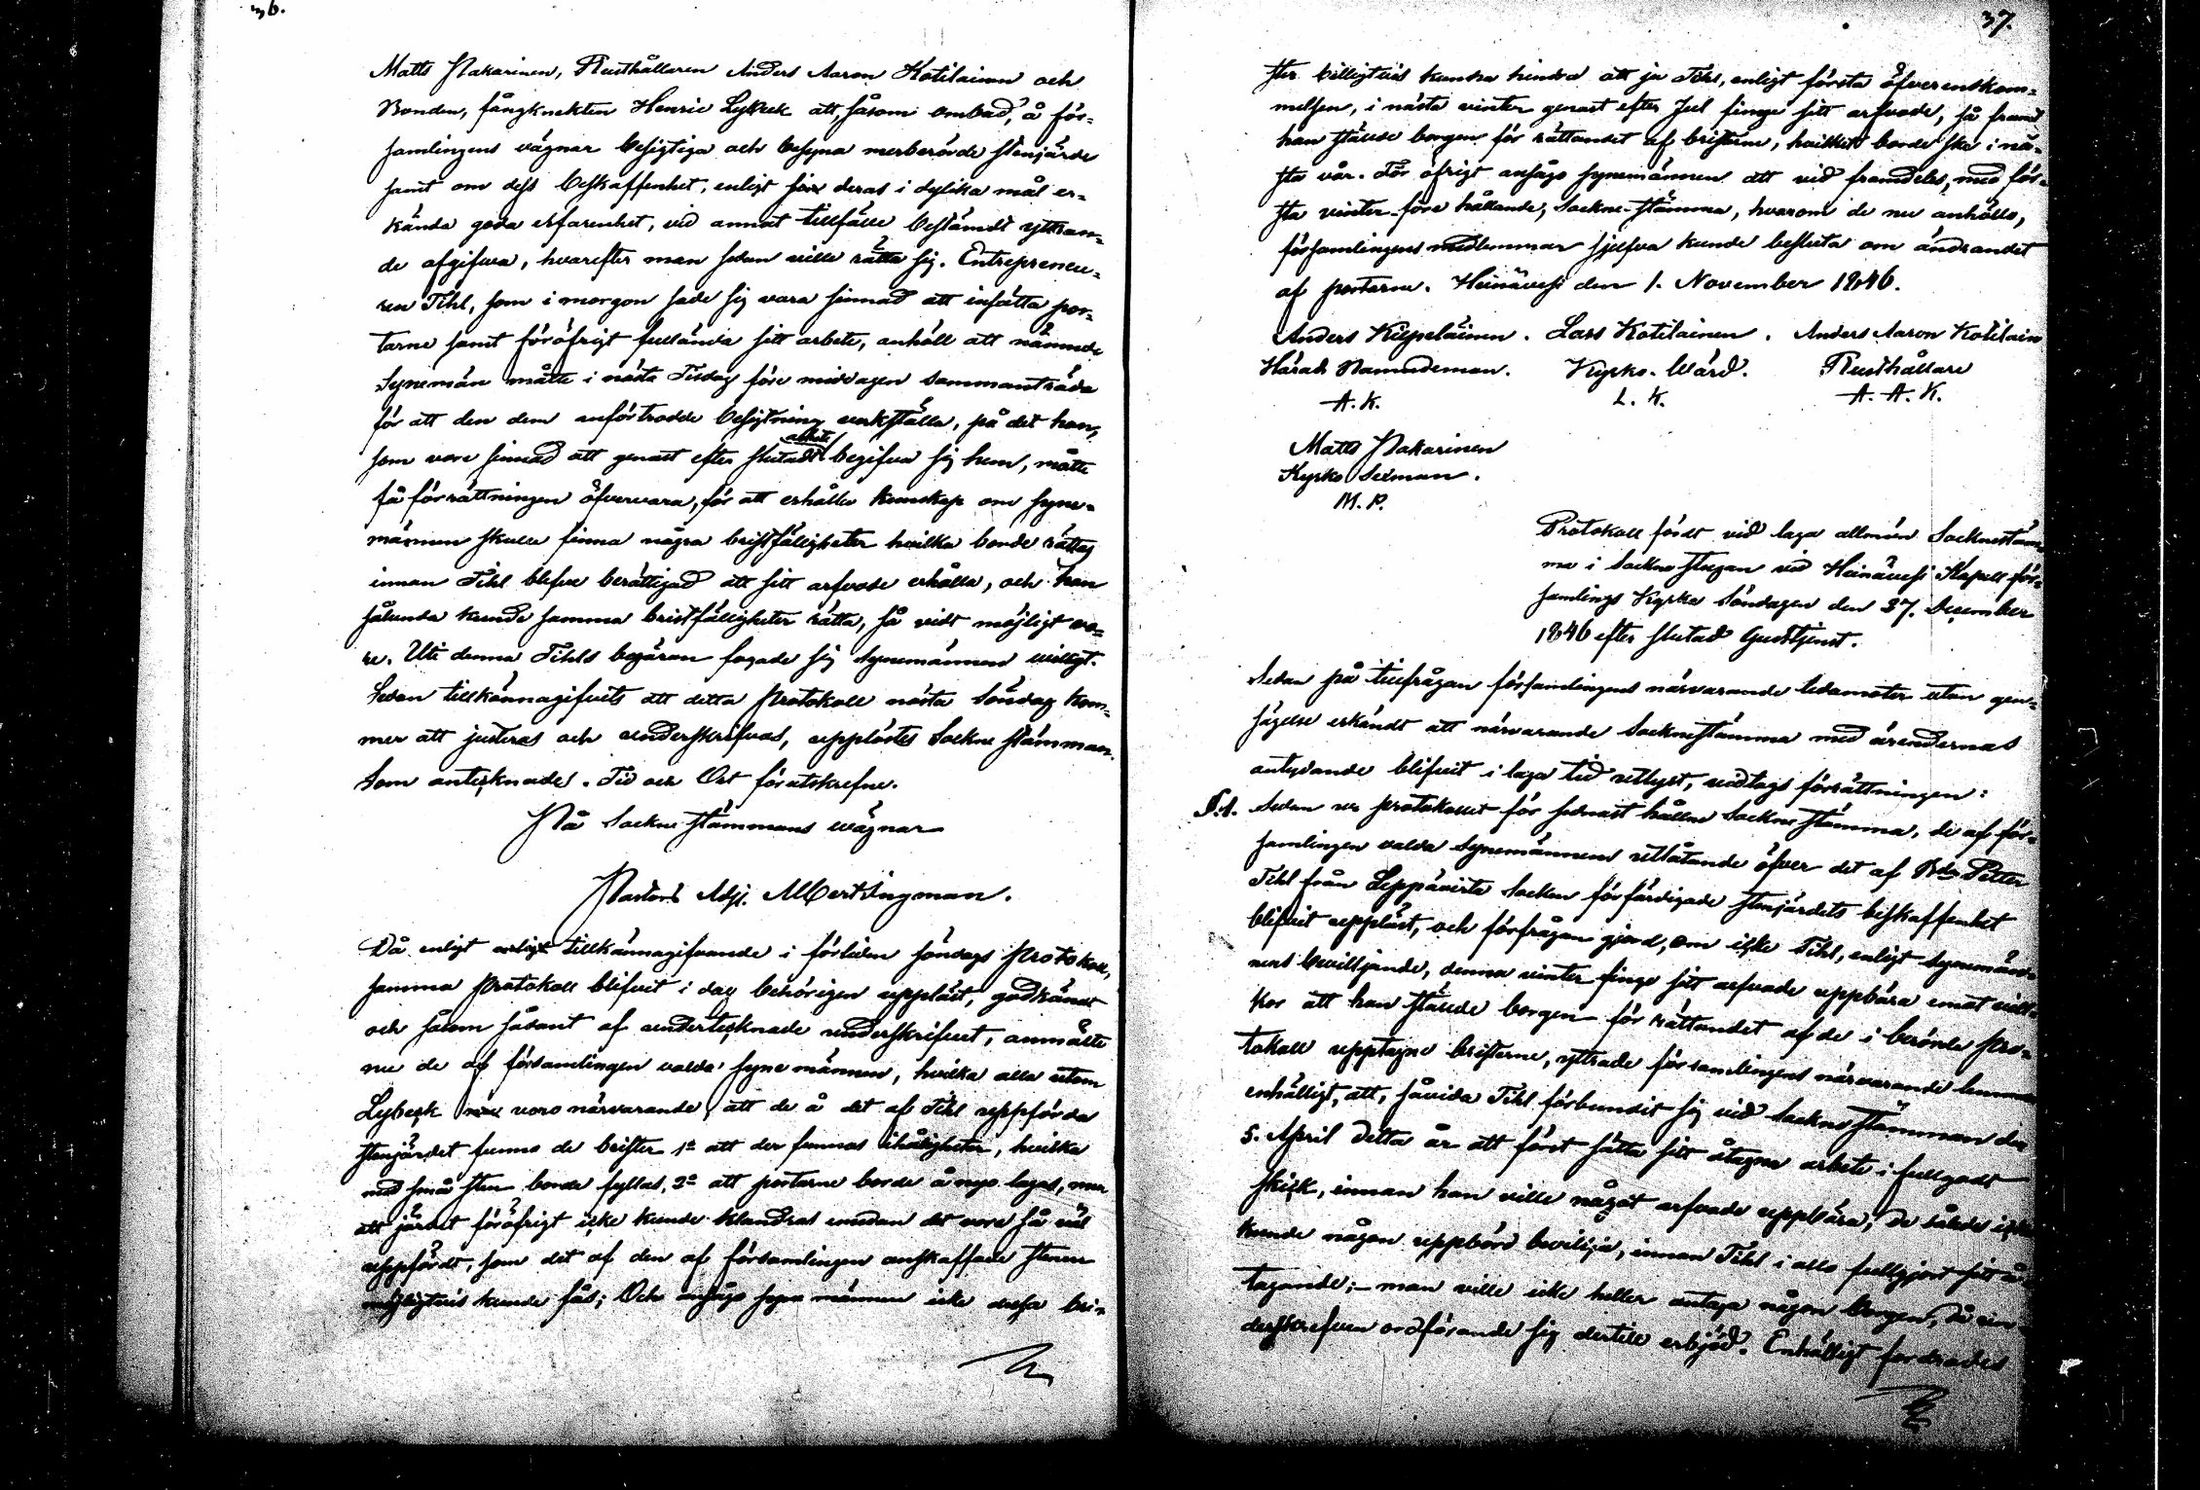 36.
Matts Pakarinen, Rusthållaren Anders Aaron Kotilainen och
Bonden, fångknekten Henric Lybeck att, såsom ombud, å för-
samlingens vägnar besigtiga och besyna merberörde stenjärde
samt om dess beskaffenhet, enligt deras i dylika mål er-
kända goda erfarenhet, vid annat tillfälle bestämdt yttran-
de afgifva, hvarefter man sedan ville rätta sig. Entrepreneu-
ren Tihl, som i morgon sade sig vara sinnad att insätta por-
tarne samt föröfrigt fullända sitt arbete, anhöll att nämnde
Synemän måtte i nästa Tisdag före middagen sammanträda
för att den dem anförtrodde besigtning verkställa, på det han,
som vore sinnad att genast efter slutadt arbete begifva sig hem, måtte
få förrättningen öfvervara, för att erhålla kunskap om syne-
männen skulle finna några bristfälligheter hvilka borde rättas
innan Tihl blefve berättigad att sitt arfvode erhålla, och han
sålunda kunde samma bristfälligheter rätta, så vidt möjligt vo-
re. Uti denna Tihls begäran fogade sig Synemännen willigt.
Sedan tillkännagifvits att detta Protokoll nästa Söndag kom-
mer att justeras och underskrifvas, upplöstes Sockne stämman.
Som antecknades. Tid och Ort förutskrefne.
På Sockne stämmans vägnar
Pastors Adj. Albert Ingman.
Då enligt tillkännagifvande i förliden söndags Protokoll,
samma Protokoll blifvit i dag behörigen uppläst, godkändt
och såsom sådant af undertecknade underskrifvet, anmälte
nu de af församlingen valda synemännen, hvilka alla utom
Lybeck voro närvarande, att de å det af Tihl uppförda
stenjärdet funno de brister 1o att der funnos ihåligheter, hvilka
med små sten borde fyllas, 2o att portarne borde å nyo lagas, men
att järdet föröfrigt icke kunde klandras emedan det vore så väl
uppfördt, som det af den af församlingen anskaffade stenen
möjligtvis kunde fås; Och ansågo syne männen icke dessa bri-
37.
ster billigtvis kunna hindra att ju Tihl, enligt första öfverenskom-
melsen, i nästa vinter genast efter Jul finge sitt arfvode, så framt
han ställde borgen för rättandet af bristerne, hvilket borde ske i nä-
sta vår. För öfrigt ansågo synemännen att vid framdeles, med för-
sta vinter-före hållande, Sockne-stämma, hvarom de nu anhöllo,
församlingens medlemmar sjelfva kunde besluta om ändrandet
af portarne. Heinävesi den 1. November 1846.
Anders Kilpeläinen. Lars Kotilainen. Anders Aaron Kotilain
Härads Nämndeman. Kyrko-Wärd. Rusthållare
A. K. L. K. A. A. K.
Matts Pakarinen
Kyrko Sexman.
M. P.
Protokoll fördt vid laga allmän Socknestäm-
ma i Sockne stugan vid Heinävesi Kapell för-
samlings Kyrka Söndagen den 27. December
1846 efter slutad Gudstjenst.
Sedan på tillfrågan församlingens närvarande ledamöter utan gen-
sägelse erkändt att närvarande Socknestämma med ärendernas
antydande blifvit i laga tid utlyst, vidtogs förrättningen:
§.1. Sedan ur protokollet för sednast hållne Sockne stämma, de af för-
samlingen valda Synemännens utlåtande öfver det af Bdn Petter
Tihl från Leppävirta Socken förfärdigade stenjärdets beskaffenhet
blifvit uppläst, och förfrågan gjord, om icke Tihl, enligt Synemän-
nens bevilljande, denna vinter finge sitt arfvode uppbära emot vill-
kor att han ställde borgen för rättandet af de i berörde Pro-
tokoll upptagne bristerne, yttrade församlingens närvarande
enhälligt, att, såvida Tihl förbundit sig vid Sockne stämman den
5. April detta år att först sätta sitt åtagna arbete i fullgodt
skick, innan han ville något arfvode uppbära; de således icke
kunde någon uppbörd bevilja, innan Tihl i allo fullgjort sitt å-
tagande; - man ville icke heller antaga någon borgen, då un-
derskrefven ordförande sig dertill erbjöd. Enhälligt fordrades